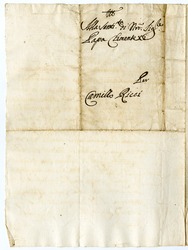 Alla Santtà di Nro Sigre
Papa Clemente XI
Per
Camillo Ricci